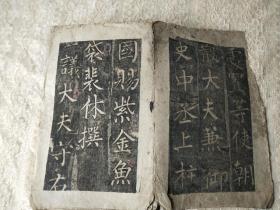 置等使朝
散大夫兼御
史中丞上柱
國賜紫金魚
袋裴休撰
議大夫守右